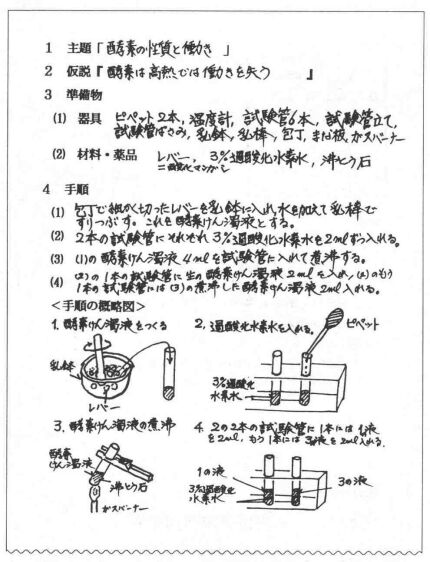 1 主題「酵素の性質と働き 」
2 仮説『酵素は高熱では働きを失う 』
3 準備物
(1) 器具 ピペット2本, 温度計, 試験管6本, 試験管立て,
試験管ばさみ, 乳鉢, 乳棒, 包丁, まな板, ガスバーナー
(2) 材料・薬品 レバー, 3%過酸化水素水, 沸とう石
二酸化マンガン
4 手順
(1) 包丁で細かく切ったレバーを乳鉢に入れ, 水を加えて乳棒で
すりつぶす。これを酵素けん濁液とする。
(2) 2本の試験管にそれぞれ3%過酸化水素水を2mlずつ入れる。
(3) (1)の酵素けん濁液4mlを試験管に入れて煮沸する。
(4) (2)の1本の試験管に生の酵素けん濁液2mlを入れ, (2)のもう
1本の試験管には(3)の煮沸した酵素けん濁液2ml入れる。
<手順の概略図>
1. 酵素けん濁液をつくる
乳鉢
レバー
2. 過酸化水素水を入れる。
ピペット
3%過酸化
水素水
3. 酵素けん濁液の煮沸
酵素
けん濁液
沸とう石
ガスバーナー
4. 2の2本の試験管に1本には1液
を2ml, もう1本には3液を2ml入れる。
1の液
3%過酸化
水素水
3の液